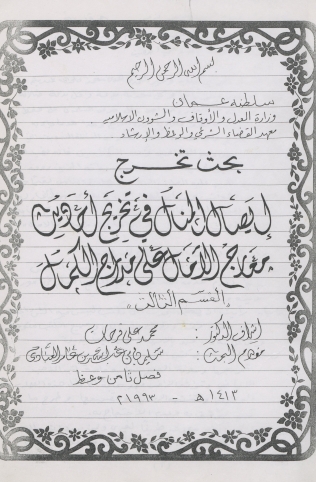 بسم الله الرحمن الرحيم
سلطنة عمان
وزارة العدل والأوقاف والشؤون الإسلامية
معهد القضاء الشرعي والوعظ والإرشاد
بحث تخرج
إيصال المنال في تخريج أحاديث
معارج الآمال على مدارج الكمال
"القسم الثالث"
إشراف الدكتور : محمد علي فرحات
مقدم البحث : بن عبد الله بن
فصل ثامن وعظ
١٤١٣ هـ - ١٩٩٣ م